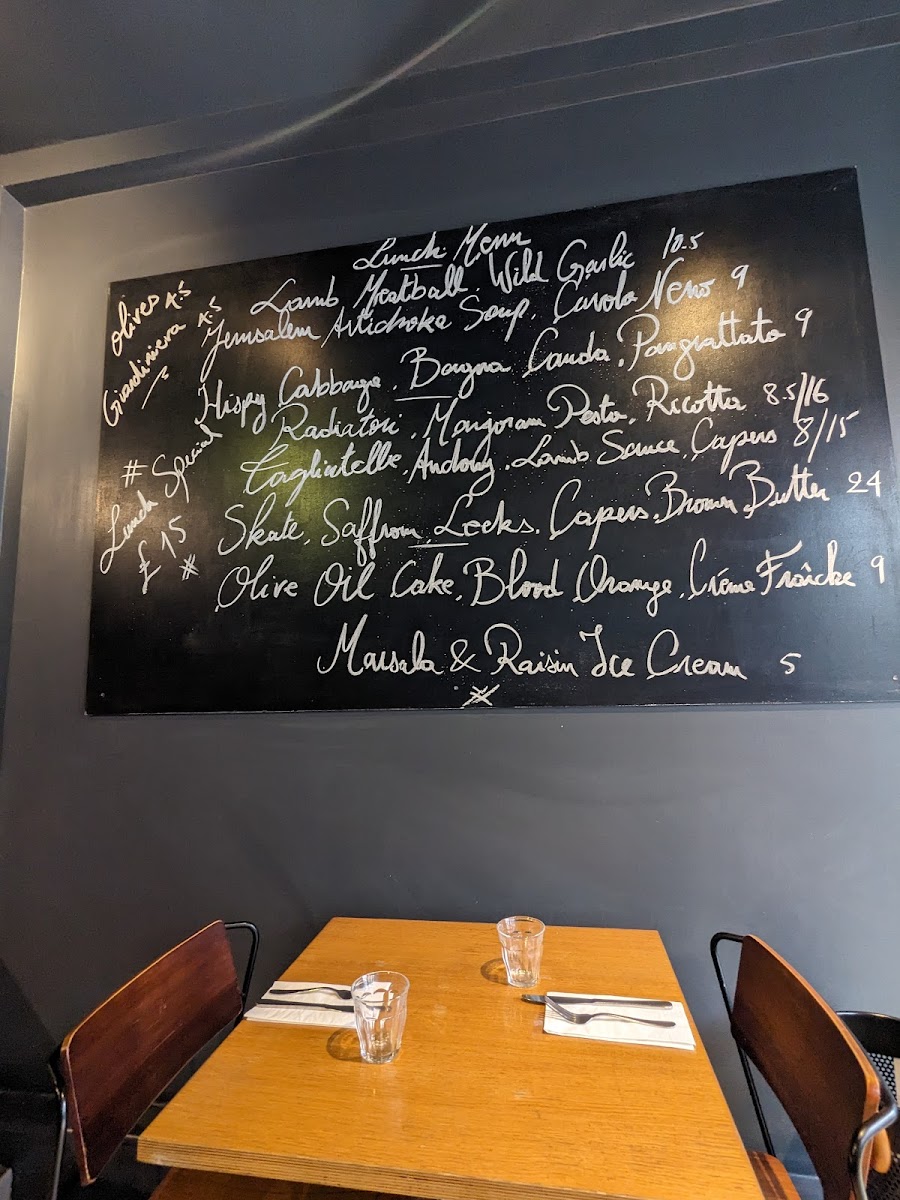 Lunch Menu
Lamb Meatball. Wild Garlic 10.5
Jerusalem Artichoke Soup. Cavolo Nero 9
Hispy Cabbage. Bagna Cauda. Pangrattato 9
Radiatori. Marjoram Pesto. Ricotta 8.5/16
Tagliatelle. Lamb Sauce. Capers 8/15
Skate. Saffron Leeks. Capers. Brown Butter 24
Olive Oil Cake. Blood Orange. Crème Fraîche 9
Marsala & Raisin Ice Cream 5
Olives 4.5
Giardiniera 4.5
# Lunch Special
£15 #